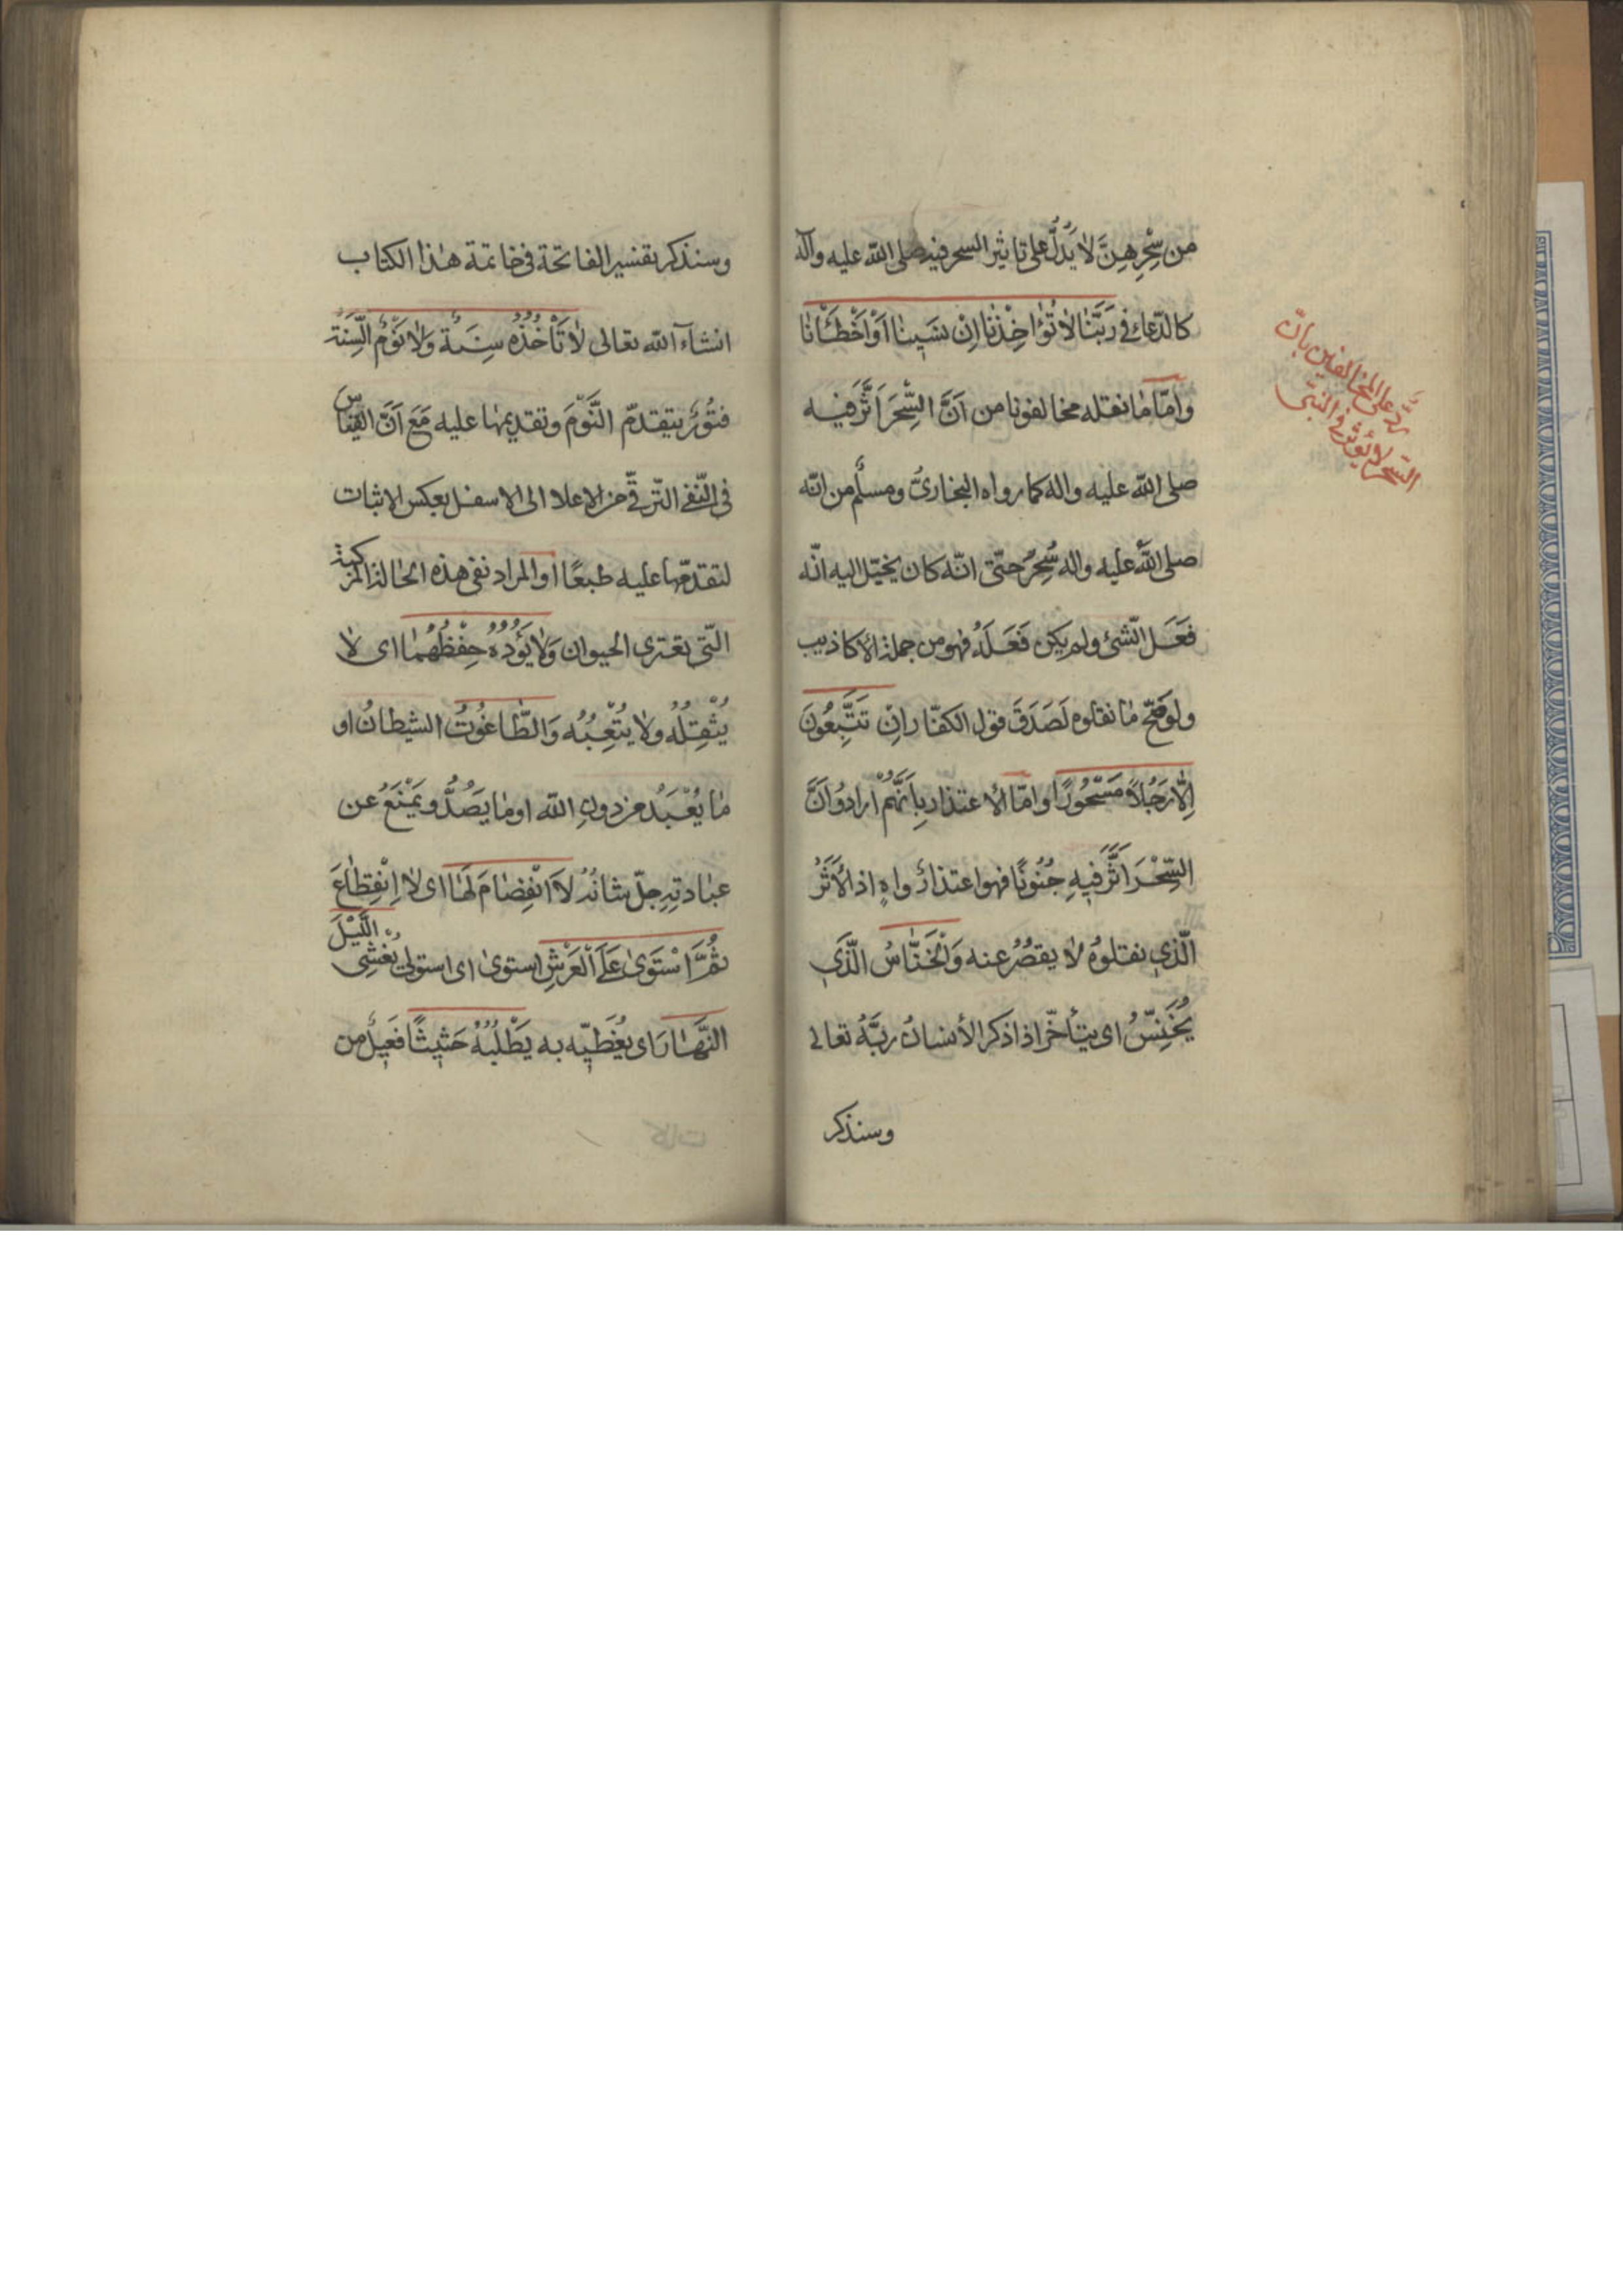 من سِحْرِهِنَّ لا يَدُلُّ على تاثير السحر فيه صلى الله عليه وآله
كالدّعاء في رَبَّنَا لا تُؤاخِذْنا اِنْ نسَينا اَوْ اَخْطَأْنا
وامّا ما نقله مخالفونا من اَنَّ السِّحْرَ اَثَّرَ فيه
صلى الله عليه واله كما رواه البخاريُّ ومسلمٌ من انّه
صلى الله عليه واله سُحِرَ حتّى انّه كان يخيّل اليه انّه
فَعَلَ الشّئ ولم يكن فَعَلَهُ فهو من جملة الأكاذيب
ولو صَحَّ ما نقلوه لَصَدَقَ قول الكفّار اِنْ تَتَّبِعُونَ
اِلّا رَجُلاً مَسْحُورًا وامّا الأعتذار بِاَنَّهُمْ ارادوُا اَنَّ
السِّحْرَ اَثَّرَ فيهِ جُنُونًا فهو اعتذارٌ واهٍ اذ الأَثَرُ
الّذي نقلوُه لا يقصُرُ عنه وَالْخَنّاسُ الَّذي
يُخَنِسُّ اى يتأخّر اذا ذكر الأنسانُ ربَّهُ تعالى
وسنذكر
ردّ على المخالفين بانّ
السّحر لا يُؤثّر في النبّى
وسنذكر تفسير الفاتحة في خاتمة هذا الكتاب
انشاء الله تعالى لا تَأْخُذُهُ سِنَةٌ وَلا نَوْمٌ السِّنَة
فتُورٌ يتقدّم النَّوْمَ وتقديمها عليه مَعَ اَنَّ القياس
في النّفى التّرقّى من الاعلا الى الاسفل بعكس الاثبات
لتقدّمها عليه طبعًا او المراد نفى هذه الحالة المركبة
الّتى تعترى الحيوان وَلا يَؤُدُهُ حِفْظُهُما اى لا
يُثْقِلُه ولا يُتْعِبُهُ وَالطّاغُوتُ الشيطانُ او
ما يُعْبَدُ من دونِ الله او ما يَصُدُّ ويَمْنَعُ عن
عبادتِهِ جلّ شانُهُ لاَ انْفِصامَ لَها اى لا اِنْقِطاعَ
ثُمَّ اسْتَوى عَلَى الْعَرْشِ استوى اى استولى يُغْشِى اللَّيْلَ
النَّهارَ اى يُغَطّيه به يَطْلُبُهُ حَثيثًا فَعيلٌ من